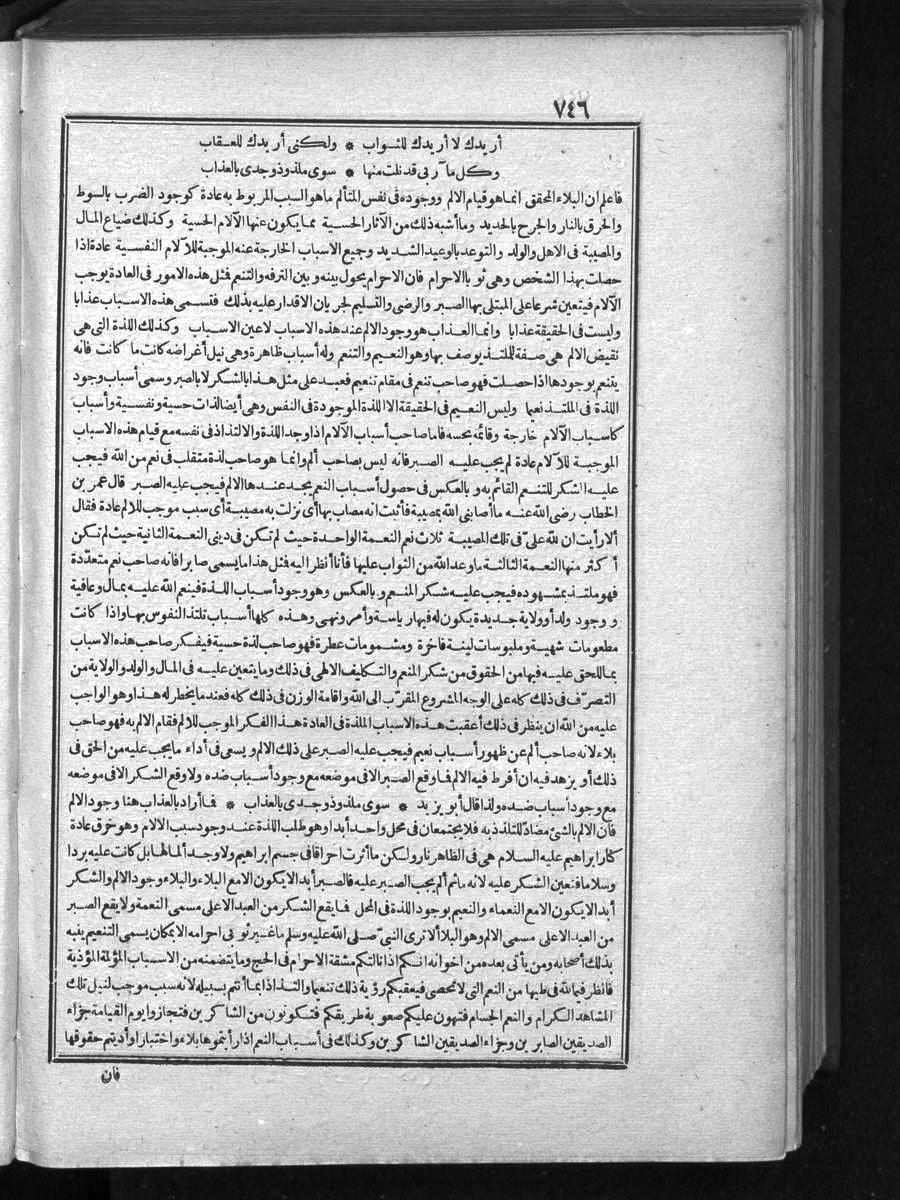 ٧٤٦
أريدك لا أريدك للثواب * ولكنى أريدك للعقاب
وكل مآربى قد نلت منها * سوى ملذوذ وجدى بالعذاب
فاعلم ان البلاء المحقق انما هو قيام الالم ووجوده فى نفس المتألم ما هو السبب المربوط به عادة كوجود الضرب بالسوط
والحرق بالنار والجرح بالحديد وما أشبه ذلك من الآثار الحسية مما يكون عنها الآلام الحسية وكذلك ضياع المال
والمصيبة فى الاهل والولد والتوعد بالوعيد الشديد وجميع الاسباب الخارجة عنه الموجبة للآلام النفسية عادة اذا
حصلت بهذا الشخص وهى ثوبا الاحرام فان الاحرام يحول بينه وبين الترفه والتنعم فمثل هذه الامور فى العادة يوجب
الآلام فيتعين شرعا على المبتلى بها الصبر والرضى والتسليم لجريان الاقدار عليه بذلك فتسمى هذه الاسباب عذابا
وليست فى الحقيقة عذابا وانما العذاب هو وجود الالم عند هذه الاسباب لا عين الاسباب وكذلك اللذة التى هى
نقيض الالم هى صفة للملتذ يوصف بها وهو النعيم والتنعم وله أسباب ظاهرة وهى نيل أغراضه كانت ما كانت فانه
يتنعم بوجودها اذا حصلت فهو صاحب تنعم فى مقام تنعيم فعبد على مثل هذا بالشكر لا بالصبر وسمى أسباب وجود
اللذة فى الملتذ نعيما وليس النعيم فى الحقيقة الا اللذة الموجودة فى النفس وهى أيضا لذات حسية ونفسية وأسباب
كاسباب الآلام خارجة وقائمه بحسه فاما صاحب أسباب الآلام اذا وجد اللذة والالتذاذ فى نفسه مع قيام هذه الاسباب
الموجبة للآلام عادة لم يجب عليه الصبر فانه ليس بصاحب ألم وانما هو صاحب لذة متقلب فى نعم من الله فيجب
عليه الشكر للتنعم القائم به وبالعكس فى حصول أسباب النعم يجد عندها الالم فيجب عليه الصبر قال عمر بن
الخطاب رضى الله عنه ما أصابنى الله بمصيبة فأثبت انه مصاب بها أى نزلت به مصيبة أى سبب موجب للالم عادة فقال
ألا رأيت ان لله علىّ فى تلك المصيبة ثلاث نعم النعمة الواحدة حيث لم تكن فى دينى النعمة الثانية حيث لم تكن
أكثر منها النعمة الثالثة ما وعد الله من الثواب عليها فأنا أنظر اليه فمثل هذا ما يسمى صابرا فانه صاحب نعم متعدّدة
فهو ملتذ بمشهوده فيجب عليه شكر المنعم وبالعكس وهو وجود أسباب اللذة فينعم الله عليه بمال وعافية
ووجود ولد أو ولاية جديدة يكون له فيها رياسة وأمر ونهى وهذه كلها أسباب تلتذ النفوس بها واذا كانت
مطعومات شهية وملبوسات لينة فاخرة ومشمومات عطرة فهو صاحب لذة حسية فيفكر صاحب هذه الاسباب
بما للحق عليه فيها من الحقوق من شكر المنعم والتكليف الالهى فى ذلك وما يتعين عليه فى المال والولد والولاية من
التصرّف فى ذلك كله على الوجه المشروع المقرّب الى الله واقامة الوزن فى ذلك كله فعند ما يخطر له هذا وهو الواجب
عليه من الله ان ينظر فى ذلك أعقبت هذه الاسباب الملذة فى العادة هذا الفكر الموجب للالم فقام الالم به فهو صاحب
بلاء لانه صاحب ألم عن ظهور أسباب نعيم فيجب عليه الصبر على ذلك الالم ويسعى فى أداء ما يجب عليه من الحق فى
ذلك أو يزهد فيه ان أفرط فيه الالم فما وقع الصبر الا فى موضعه مع وجود أسباب ضده ولا وقع الشكر الا فى موضعه
مع وجود أسباب ضده ولذا قال أبو يزيد * سوى ملذوذ وجدى بالعذاب * فما أراد بالعذاب هنا وجود الالم
فان الالم بالشئ مضادّ للتلذذ به فلا يجتمعان فى محل واحد أبدا وهو طلب اللذة عند وجود سبب الآلام وهو خرق عادة
كنار ابراهيم عليه السلام هى فى الظاهر نار ولكن ما أثرت احراقا فى جسم ابراهيم ولا وجد ألما لها بل كانت عليه بردا
وسلاما فتعين الشكر عليه لانه ما ثم ألم يجب الصبر عليه فالصبر أبدا لا يكون الا مع البلاء والبلاء وجود الالم والشكر
أبدا لا يكون الا مع النعماء والنعيم بوجود اللذة فى المحل فما يقع الشكر من العبد الا على مسمى النعمة ولا يقع الصبر
من العبد الا على مسمى الالم وهو البلاء ألا ترى النبىّ صلى الله عليه وسلم ما غير ثوبى احرامه الا بمكان يسمى التنعيم ينبه
بذلك أصحابه ومن يأتى بعده من اخوانه انكم اذا نالتكم مشقة الاحرام فى الحج وما يتضمنه من الاسباب المؤلمة المؤذية
فانظر فيما لله فى طيها من النعم التى لا تحصى فيعقبكم رؤية ذلك تنعيما والتذاذا بما أنتم بسبيله لانه سبب موجب لنيل تلك
المشاهد الكرام والنعم الجسام فتهون عليكم صعوبة طريقكم فتكونون من الشاكرين فتجازوا يوم القيامة جزاء
الصديقين الصابرين وجزاء الصديقين الشاكرين وكذلك فى أسباب النعم اذا رأيتموها بلاء واختبارا وأديتم حقوقها
فان